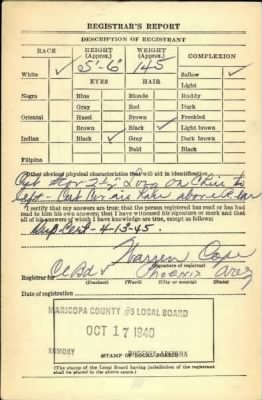 REGISTRAR'S REPORT
DESCRIPTION OF REGISTRANT
RACE HEIGHT (Approx.) WEIGHT (Approx.) COMPLEXION
White ✓ 5'-6" 145 Sallow ✓
EYES HAIR Light
Negro Blue Blonde Ruddy
Gray Red Dark
Oriental Hazel Brown Freckled
Brown Black ✓ Light brown
Indian ✓ Black ✓ Gray Dark brown
Bald Black
Filipino
Other obvious physical characteristics that will aid in identification
Long on Chin to
above
I certify that my answers are true; that the person registered has read or has had read to him his own answers; that I have witnessed his signature or mark and that all of his answers of which I have knowledge are true, except as follows:
Dup. Cert - 4-13-45.
Warren
(Signature of registrar)
Registrar for Phoenix Ariz
(Precinct) (Ward) (City or county) (State)
Date of registration
MARICOPA COUNTY #5 LOCAL BOARD
OCT 17 1940
ARMORY PHOENIX, ARIZONA
STAMP OF LOCAL BOARD
(The stamp of the Local Board having jurisdiction of the registrant shall be placed in the above space.)